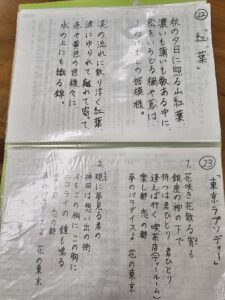 ㉒
「紅葉」
秋の夕日に照る山紅葉
濃いも薄いも数ある中に
松をいろどる楓や蔦は
山のふもとの裾模様。
渓の流れに散り浮く紅葉
波にゆられて離れて寄って
赤や黄色の色様々に
水の上にも織る錦。
㉓
「東京ラプソディー」
1. 花咲き花散る宵も
銀座の柳の下で
待つは君ひとり 君ひとり
逢えば行く 喫茶店(ティールーム)
楽し都 恋の都
夢のパラダイスよ 花の東京
2. 現に夢見る君の
神田は想い出の街
今もこの胸に この胸に
ニコライの 鐘も鳴る